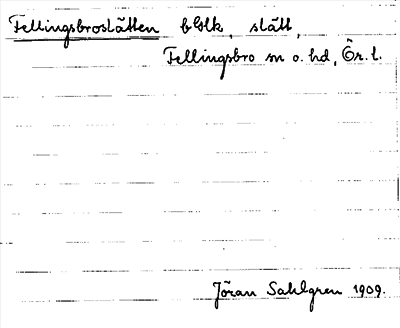 Fellingsbroslätten bblk, slätt,
Fellingsbro sn o. hd, Ör. l.
Jöran Sahlgren 1909.